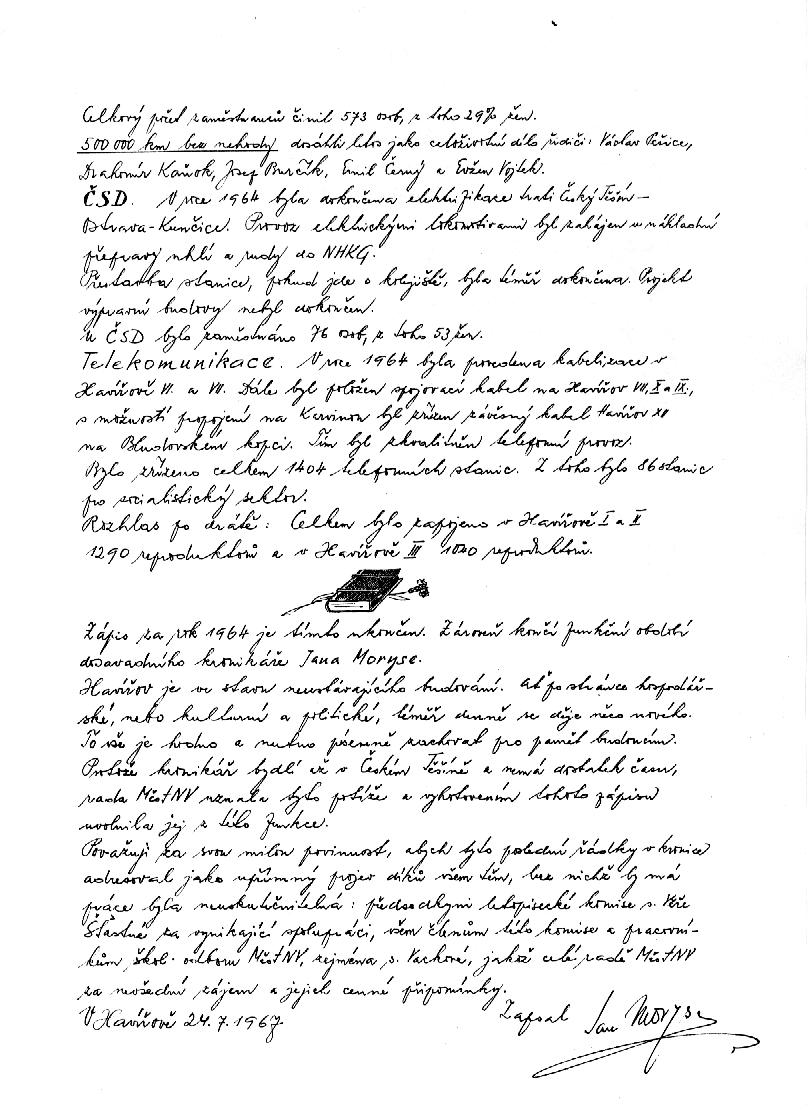 Celkový počet zaměstnanců činil 573 osob, z toho 29% žen.
500 000 km bez nehody dosáhli letos jako celoživotní dílo řidiči: Václav Peřice,
Drahomír Kaňok, Josef Burčík, Emil Černý a Evžen Vojtek.
ČSD. V roce 1964 byla dokončena elektrifikace trati Český Těšín –
Ostrava-Kunčice. Provoz elektrickými lokomotivami byl zahájen u nákladní
přepravy uhlí a rudy do NHKG.
Přestavba stanice, pokud jde o kolejiště, byla téměř dokončena. Projekt
výpravní budovy nebyl dokončen.
U ČSD bylo zaměstnáno 76 osob, z toho 53 žen.
Telekomunikace. V roce 1964 byla provedena kabelizace v
Havířově VI. a VII. Dále byl položen spojovací kabel na Havířov VII, X a IX.,
s možností propojení na Karvinou byl zřízen závěsný kabel Havířov XII
na Bludovském kopci. Tím byl zkvalitněn telefonní provoz.
Bylo zřízeno celkem 1404 telefonních stanic. Z toho bylo 86 stanic
pro socialistický sektor.
Rozhlas po drátě: Celkem bylo zapojeno v Havířově I a II
1290 reproduktorů a v Havířově III 1040 reproduktorů.
Zápis za rok 1964 je tímto ukončen. Zároveň končí funkční období
dosavadního kronikáře Jana Moryse.
Havířov je ve stavu neustávajícího budování. Ať po stránce hospodář-
ské, nebo kulturní a politické, téměř denně se děje něco nového.
To vše je hodno a nutno písemně zachovat pro paměť budoucím.
Protože kronikář bydlí až v Českém Těšíně a nemá dostatek času,
rada MěstNV uznala tyto potíže a vyhotovením tohoto zápisu
uvolnila jej z této funkce.
Považuji za svou milou povinnost, abych tyto poslední řádky v kronice
adresoval jako upřímný projev díků všem těm, bez nichž by má
práce byla neuskutečnitelná: předsedkyni letopisecké komise s. Věře
Šťastné za vynikající spolupráci, všem členům této komise a pracovní-
kům škol. odboru MěstNV, zejména s. Vackové, jakož celé radě MěstNV
za nevšední zájem a jejich cenné připomínky.
V Havířově 24.7.1967. Zapsal Jan Moryse